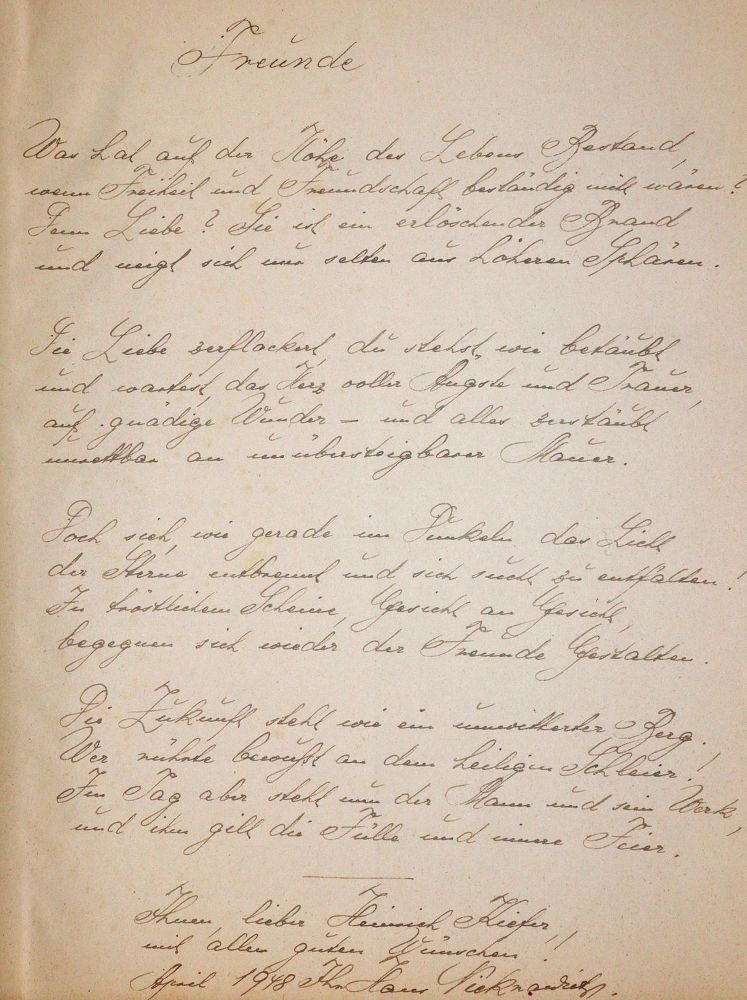 Freunde
Was hat auf der Höhe des Lebens Bestand,
wenn Freiheit und Freundschaft beständig nicht wären?
Denn Liebe? Sie ist ein erlöschender Brand
und neigt sich nur selten aus höheren Sphären.
Die Liebe zerflackert, du stehst wie betäubt
und wartest, das Herz voller Ängste und Trauer,
auf gnädige Wunder – und alles zerstäubt
unrettbar an unübersteigbarer Mauer.
Doch sieh, wie gerade im Dunkeln das Licht
der Sterne entbrennt und sich sucht zu entfalten!
In tröstlichem Scheine, Gesicht an Gesicht,
begegnen sich wieder der Freunde Gestalten.
Die Zukunft steht wie ein umwitterter Berg.
Wer rührte bewußt an dem heiligen Schleier!
Im Tag aber steht nun der Mann und sein Werk,
und ihm gilt die Fülle und innere Feier.
Ihnen, lieber Heinrich Kiefer,
mit allen guten Wünschen!!
April 1948 Ihr Hans